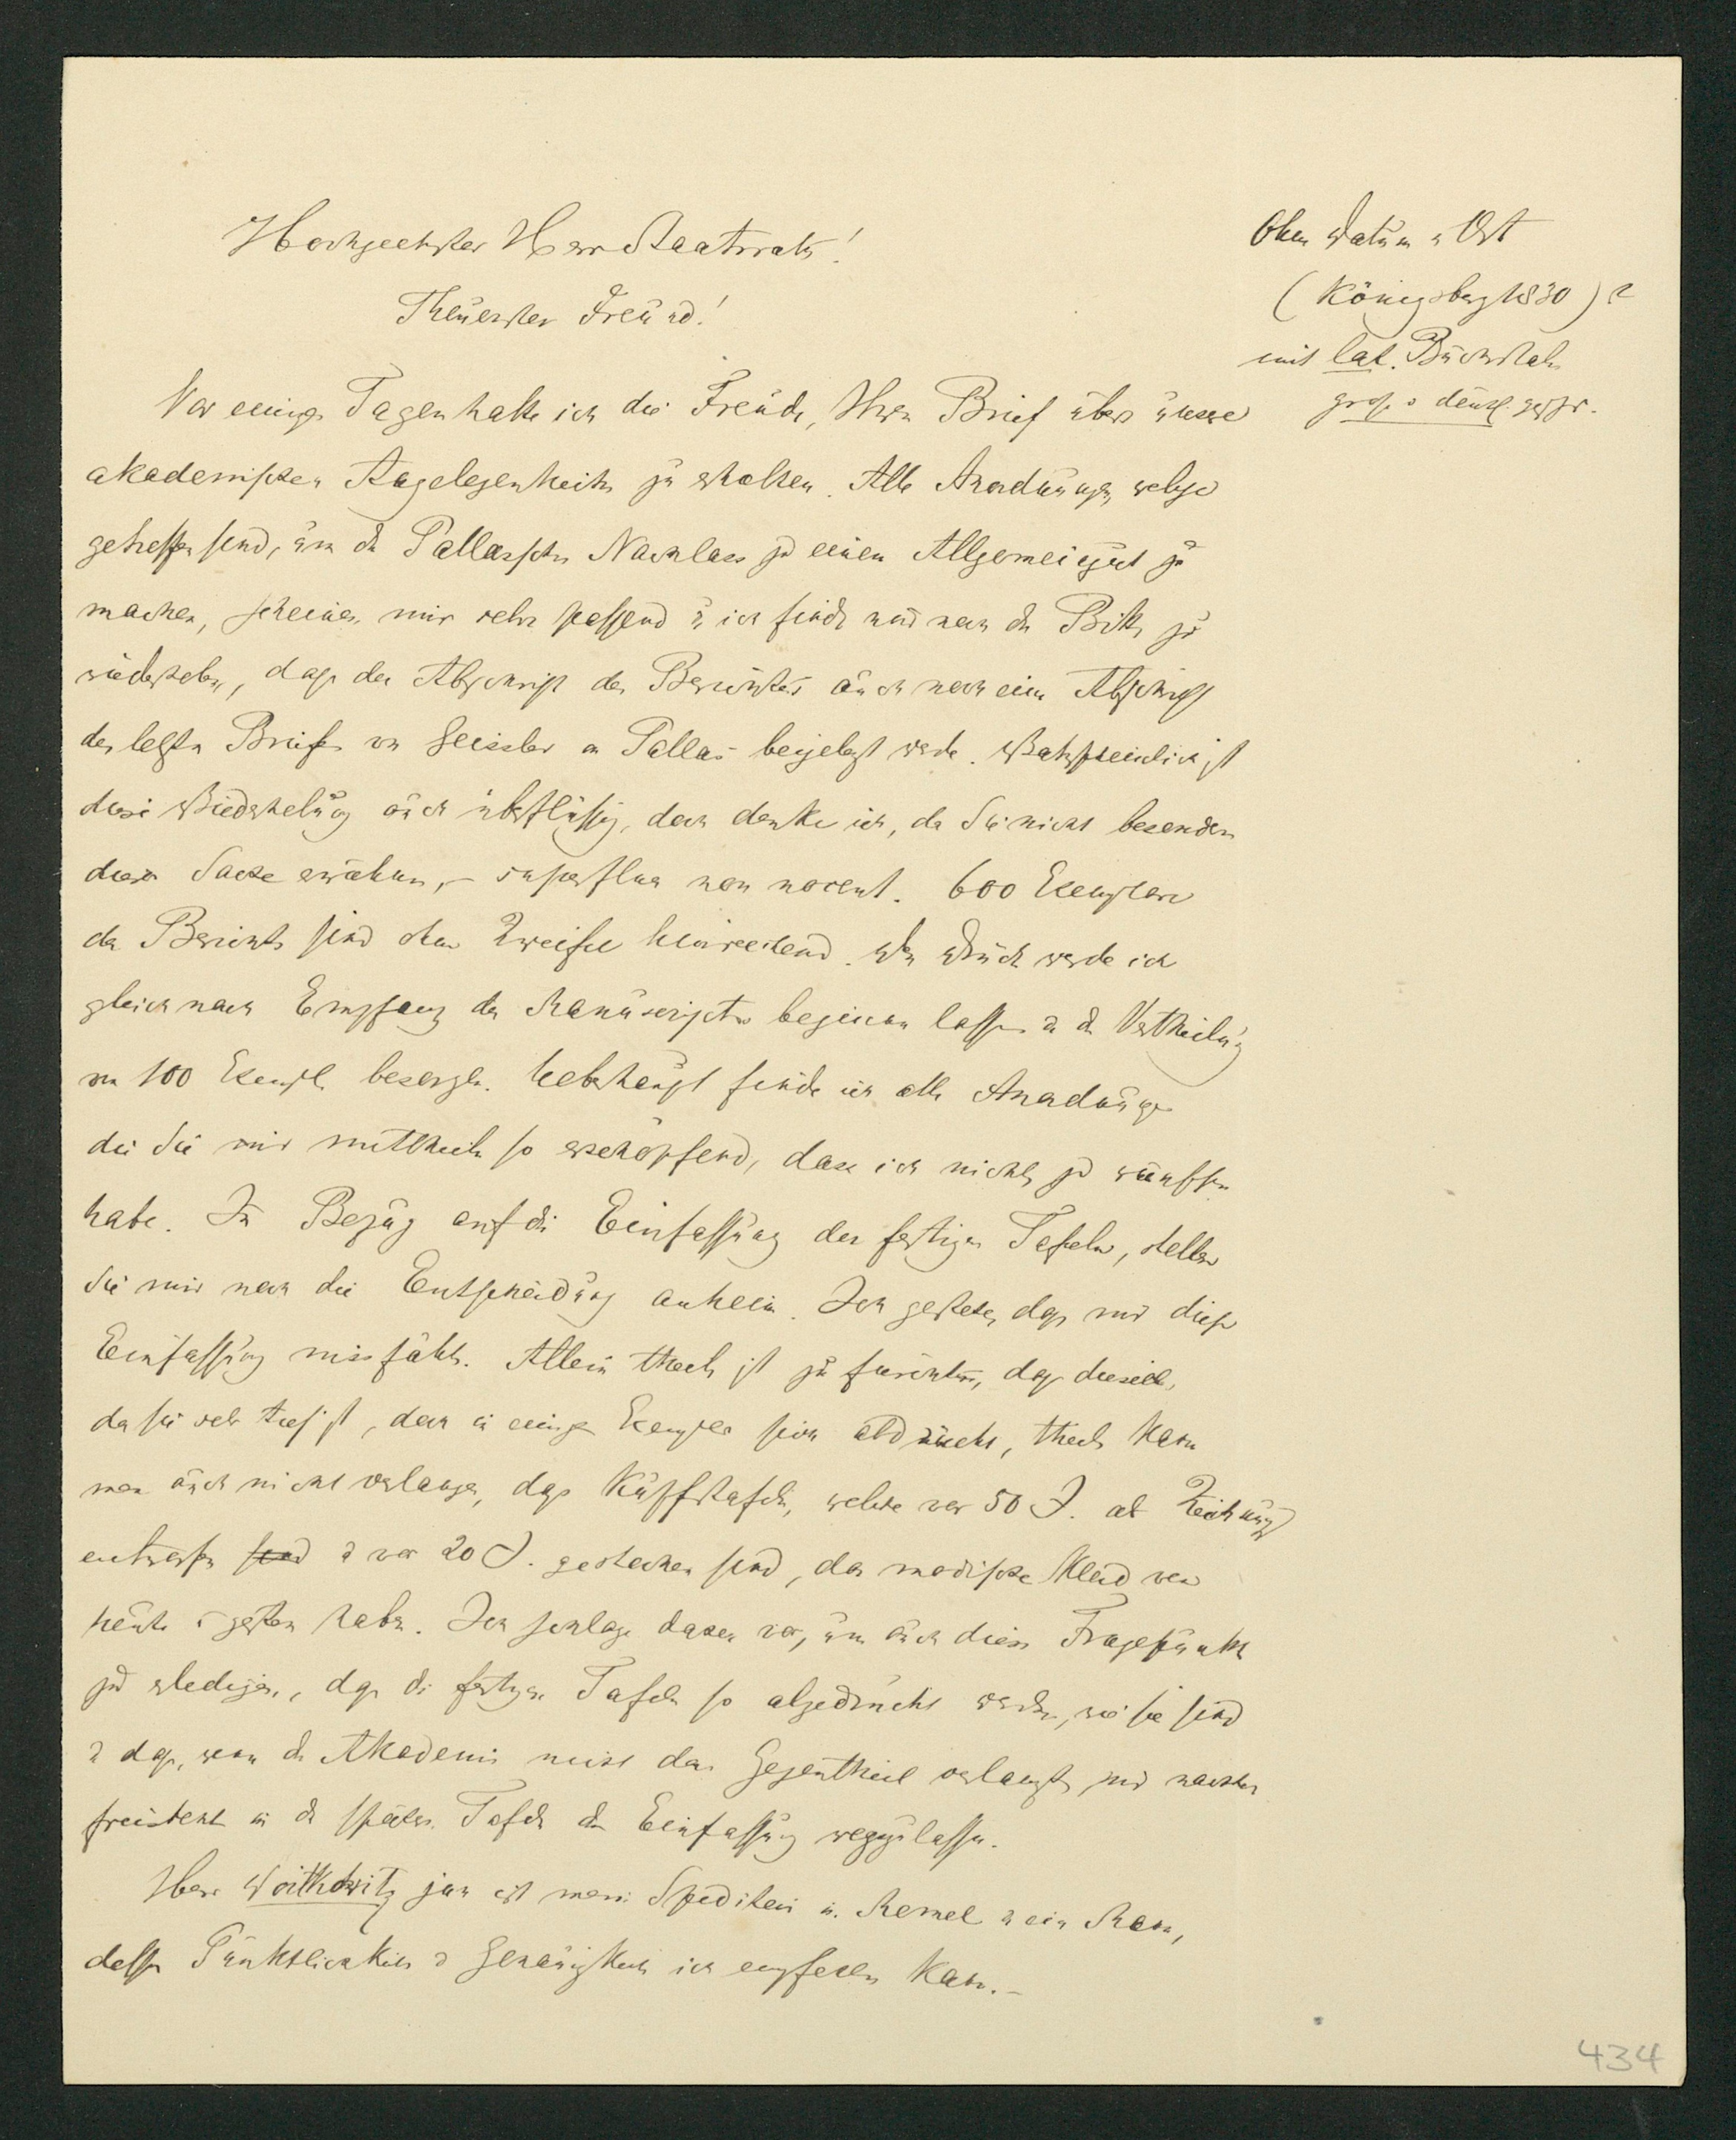 Hochgeehrter Herr Staatsrath!
Theuerster Freund!
Ohne Datum u Ort
(Königsberg 1830)?
mit lat. Buchstaben
gross u deutl. geschr.
Vor einigen Tagen hatte ich die Freude, Ihren Brief über unsere
akademischen Angelegenheiten zu erhalten. Alle Anordnungen, welche
getroffen sind, um den Pallasschen Nachlass zu einem Allgemeingut zu
machen, scheinen mir sehr passend u ich finde nur noch die Bitte zu
wiederholen, dass der Abschrift des Berichtes auch noch eine Abschrift
des letzten Briefes von Geissler an Pallas beigelegt werde. Wahrscheinlich ist
diese Wiederholung auch überflüssig, doch denke ich, da Sie nicht besonders
dieser Sache erwähnen, – superflua non nocent. 600 Exemplare
des Berichts sind ohne Zweifel hinreichend. Den Druck werde ich
gleich nach Empfang des Manuscriptes beginnen lassen u die Vertheilung
von 100 Exempl. besorgen. Ueberhaupt finde ich alle Anordnungen
die Sie mir mittheilen so erschöpfend, dass ich nichts zu wünschen
habe. In Bezug auf die Einfassung der fertigen Tafeln, stellen
Sie mir noch die Entscheidung anheim. Ich gestehe, dass mir diese
Einfassung missfällt. Allein theils ist zu fürchten, dass dieselbe,
da sie sehr tief ist, doch in einigen Exemplaren sich abdrückt, theils kann
man auch nicht verlangen, dass Kupfertafeln, welche vor 50 J. als Zeichnung
entworfen sind u vor 20 J. gestochen sind, das modische Kleid von
heute u gestern haben. Ich schlage daher vor, um auch diesen Fragepunkt
zu erledigen, dass die fertigen Tafeln so abgedruckt werden, wie sie sind
u dass, wenn die Akademie nicht das Gegentheil verlangt, mir
freisteht in den spätern Tafeln die Einfassung wegzulassen.
Herr Woitkowitz jun ist mein Spediteur in Memel u ein Mann,
dessen Pünktlichkeit u Genauigkeit ich empfehlen kann.–
434